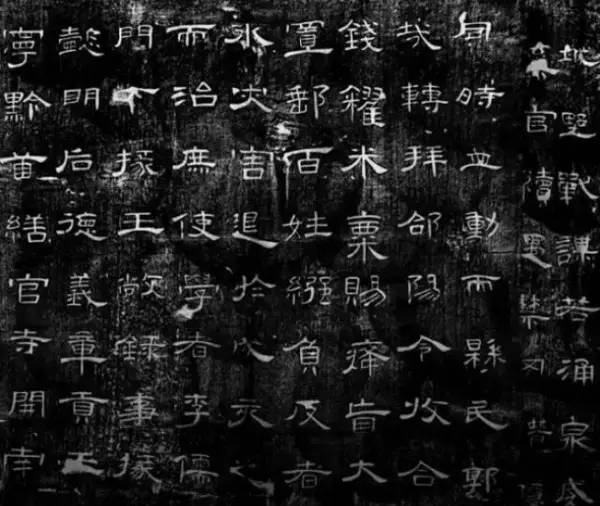 城野戰謀若涌泉威
棄官續遇禁网潛隱
同時並動而縣民郭
戎轉拜郃陽令收合
錢糴米粟賜癃盲大
置郵百姓繈負反者
水灾害退於戌亥之
而治庶使學者李儒
門下掾王敞錄事掾
懿明后德義章貢王
寧黔首繕官寺開南